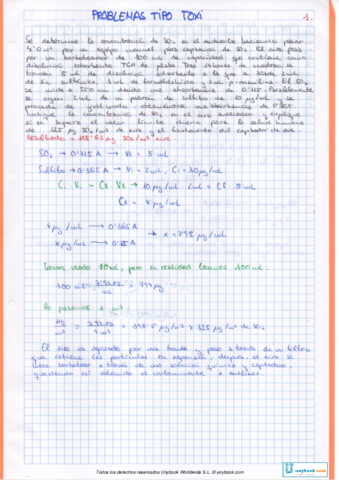 PROBLEMAS TIPO TOXI
1.
Se determina la concentración de SO₂ en el ambiente haciendo pasar
4'0 m³ por un equipo manual para captación de SO₂. El aire pasa
por un borboteador de 100 mL de capacidad que contiene como
disolución absorbente TCM de plata. Tras 24 horas de muestreo se
toman 5 mL de disolución absorbente a la que se añade 2 mL
de ác. sulfámico, 2 mL de formaldehído y 2 mL p-rosanilina. El SO₂
se mide a 550 nm dando una absorbancia de 0'725. Paralelamente
se cogen 2 mL de un patrón de sulfito de 10 μg/mL y se
procede de igual modo obteniéndose una absorbancia de 0'365.
Indique la concentración de SO₂ en el aire analizado y explique
si se supera el valor límite diario para la salud humana
de 125 μg SO₂/m³ de aire y el fundamento del captador de aire.
Resultado = 198'63 μg SO₂/m³ aire
SO₂ → 0'725 A → V = 5 mL
Sulfito → 0'365 A → Vi = 2 mL, Ci = 10 μg/mL
Ci Vi = Cs Vs → 10 μg/mL · 2 mL = Cs · 5 mL
Cs = 4 μg/mL
4 μg/mL → 0'365 A
x μg/mL → 0'725 A
→ x = 7'95 μg/mL
100 mL
= 794 μg
μg/m³ = = 198'5 μg/m³ > 125 μg/m³ de SO₂
El aire es aspirado por una bomba y pasa a través de un filtro
que retiene las partículas en suspensión, después, el aire se
hace borbotear a través de una solución química y captadora,
quedando así retenido el contaminante a analizar.
Todos los derechos reservados Unybook Worldwide S.L. © unybook.com
unybook.com